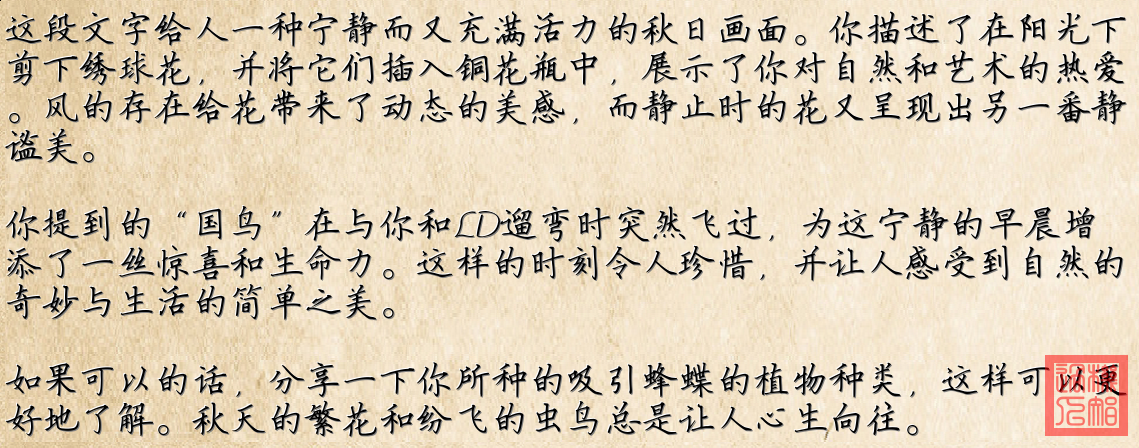 这段文字给人一种宁静而又充满活力的秋日画面。你描述了在阳光下
剪下绣球花，并将它们插入铜花瓶中，展示了你对自然和艺术的热爱
。风的存在给花带来了动态的美感，而静止时的花又呈现出另一番静
谧美。
你提到的“国鸟”在与你和LD遛弯时突然飞过，为这宁静的早晨增
添了一丝惊喜和生命力。这样的时刻令人珍惜，并让人感受到自然的
奇妙与生活的简单之美。
如果可以的话，分享一下你所种的吸引蜂蝶的植物种类，这样可以更
好地了解。秋天的繁花和纷飞的虫鸟总是让人心生向往。